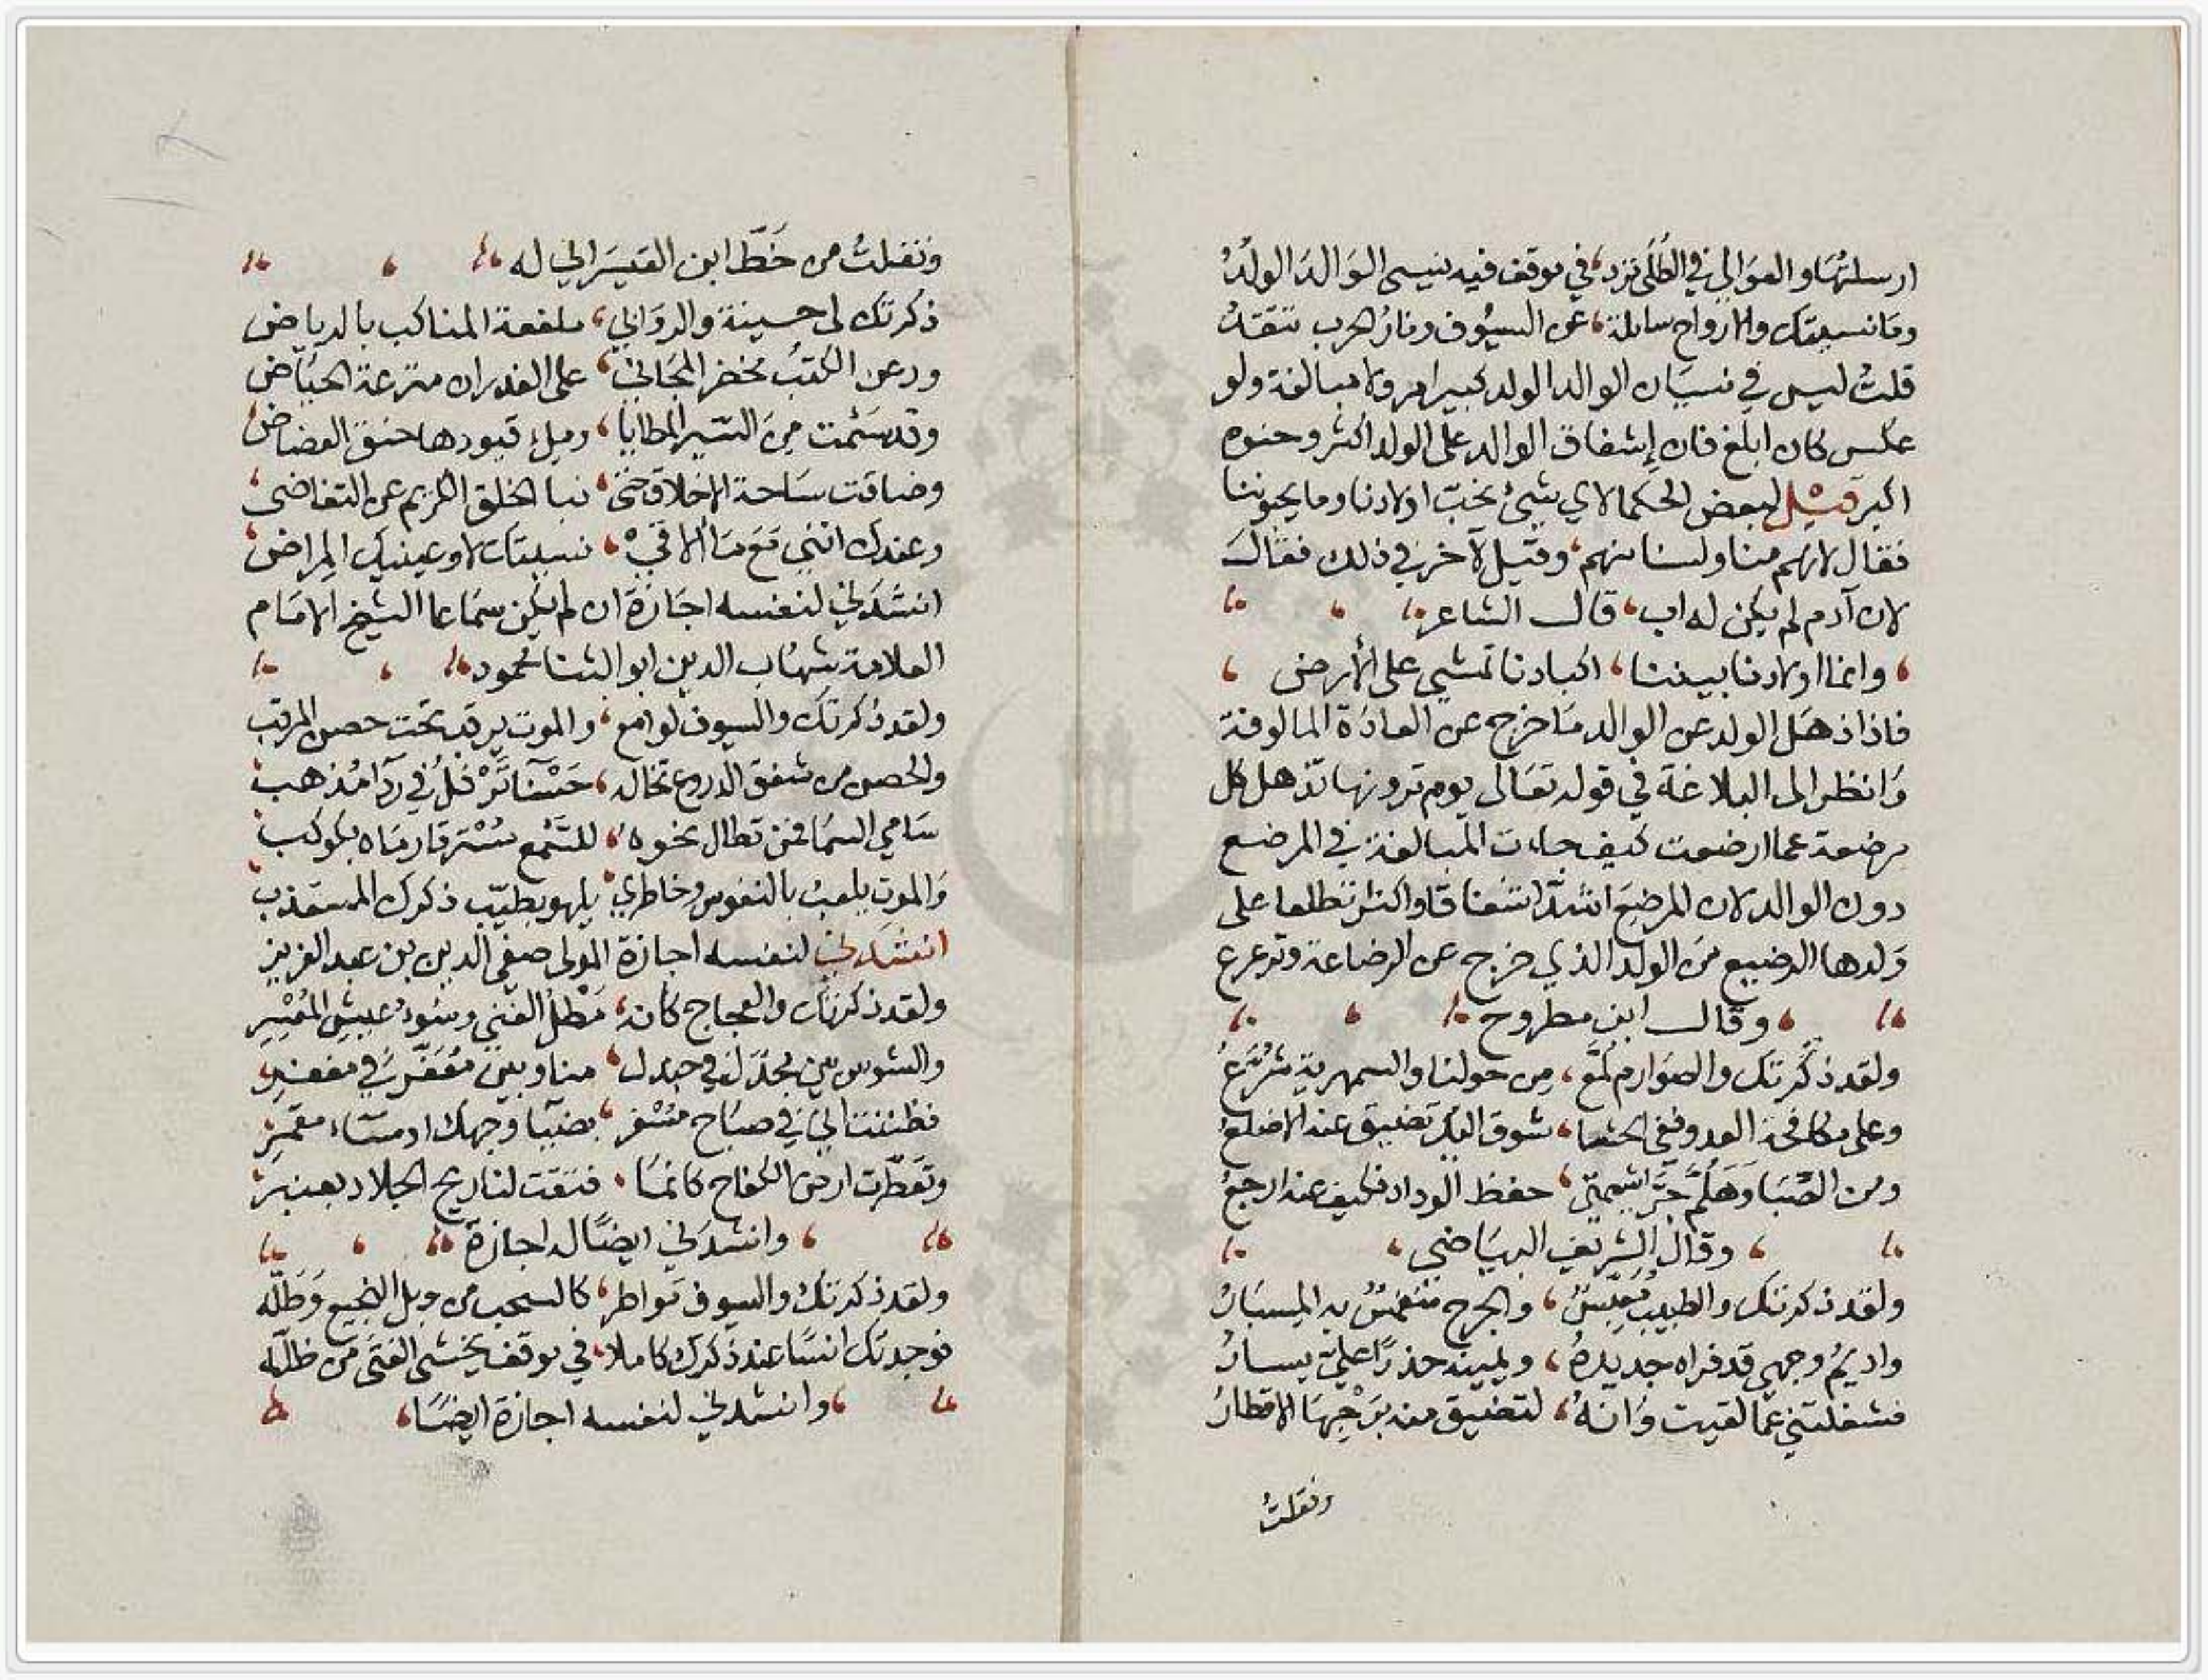 ارسلتها والعوالي في الطلى ترد، في موقف فيه ينسى الوالد الولدُ
وما نسيتك والارواح سائلة، عن السيوف ونار الحرب تتقدُ
قلتُ ليس في نسيان الوالد الولد كبير امر ولا مبالغة ولو
عكس كان ابلغ فان إشفاق الوالد على الولد اكثر وحنوه
اكبر قيل لبعض الحكما لاي شيء نحبّ اولادنا وما يحبوننا
فقال لانهم منا ولسنا منهم، وقيل لآخر في ذلك فقال
لان آدم لم يكن له اب، قال الشاعر
، وانما اولادنا بيننا، اكبادنا تمشي على الأرض ،
فاذا ذهل الولد عن الوالد ما خرج عن العادة المالوفة
وانظر الى البلاغة في قوله تعالى يوم ترونها تذهل كل
مرضعة عما ارضعت كيف جاءت المبالغة في المرضع
دون الوالد لان المرضع اشدّ اشفاقا واكثر تطلعا على
ولدها الرضيع من الولد الذي خرج عن الرضاعة وترعرع
، وقال ابن مطروح
ولقد ذكرتك والصوارم لمّع، من حولنا والسمهرية شرّعُ
وعلى مكافحة العدو ففي الحشا، شوق اليك تضيق عنه الاضلعُ
ومن الصبا وهلمّ جرّا شيمتي، حفظ الوداد فكيف عنه ارجعُ
، وقال الشريف البياضي ،
ولقد ذكرتك والطبيب معبّسٌ، والجرح منغمسٌ به المسبارُ
واديمُ وجهي قد فراه حديدهُ، ويمينه حذرًا عليّ يسارُ
فشغلتني عما لقيت وانهُ، لتضيق منه برحبها الاقطارُ
ونقلتُ
ونقلتُ من خطّ ابن القيسراني له
ذكرتك لى حسينة والروابي، ملفعة المناكب بالرياض
ورعن الكثب مخضر المجاني، على الغدران مترعة الحياض
وقد سئمت من السير المطايا، وملء قيودها حنق الغضاض
وضاقت ساحة الاخلاق حتى، نبا الخلق الكريم عن التغاضي
وعندك انني مع ما ألاقيْ، نسيتك لا وعينيك المراض
انشدني لنفسه اجازة ان لم يكن سماعا الشيخ الامام
العلامة شهاب الدين ابو الثنا محمود
ولقد ذكرتك والسيوف لوامع، والموت يرقب تحت حصن المرقب
والحصن من شفق الدروع تخاله، حسْنآ تَرْفلُ في ردا مُذهب
سامي السما فمن تطاول نحوه، للسّمع مُسْترقا رماه بكوكب
والموت يلعبُ بالنفوس وخاطري، يلهو بطيّب ذكرك المستعذب
انشدني لنفسه اجازة المولى صفي الدين بن عبد العزيز
ولقد ذكرتك والعجاج كانه، مَطْلُ الغني وسُوء عيش المُعْسِرِ
والشوس بين مجدّل في جندل، منا وبين معَفّر في مغفر
فظننت اني في صباح مسْفر، بضيا وجهك او مساء مقمر
وتعطّرت ارض الكفاح كانما، فتقت لنا ريح الجلاد بعنبر
، وانشدني ايضًا له اجازة
ولقد ذكرتك والسيوف مواطر، كالسحب من وبل النجيع وطلّه
فوجدتك انسًا عند ذكرك كاملا، في موقف يخشى الفتى من ظلّه
، وانشدني لنفسه اجازة ايضًا،